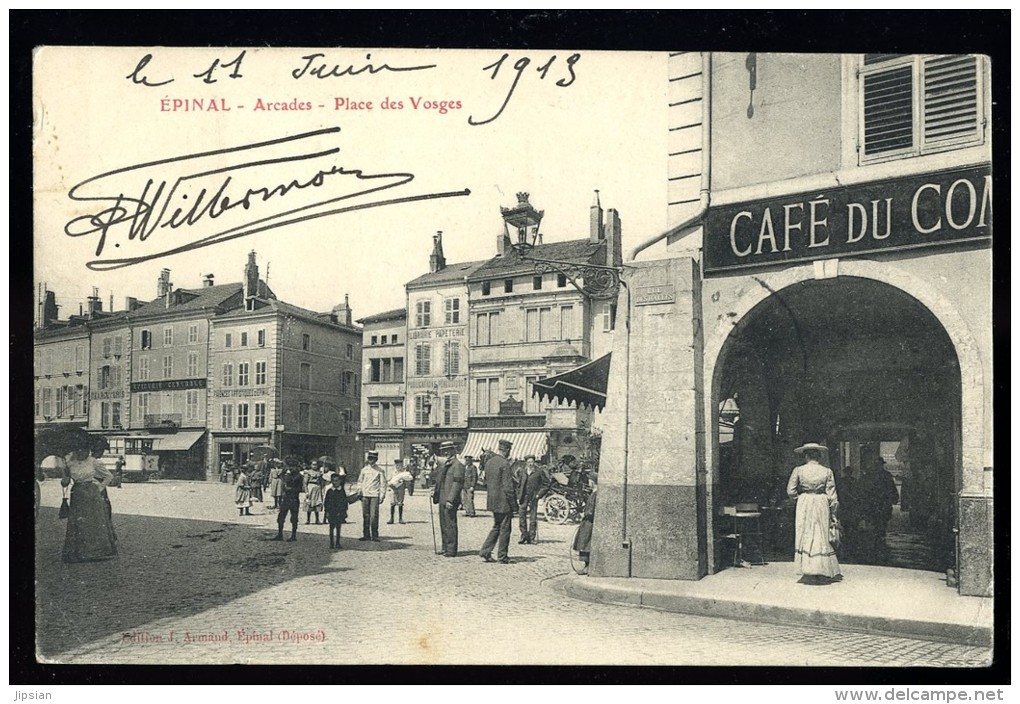 le 11 Juin 1913
ÉPINAL - Arcades - Place des Vosges
P. Willermoz
CAFÉ DU COM
LIBRAIRIE PAPETERIE
EPICERIE GENERALE
Edition J. Armand, Épinal (Déposé)
Jipsian
www.delcampe.net